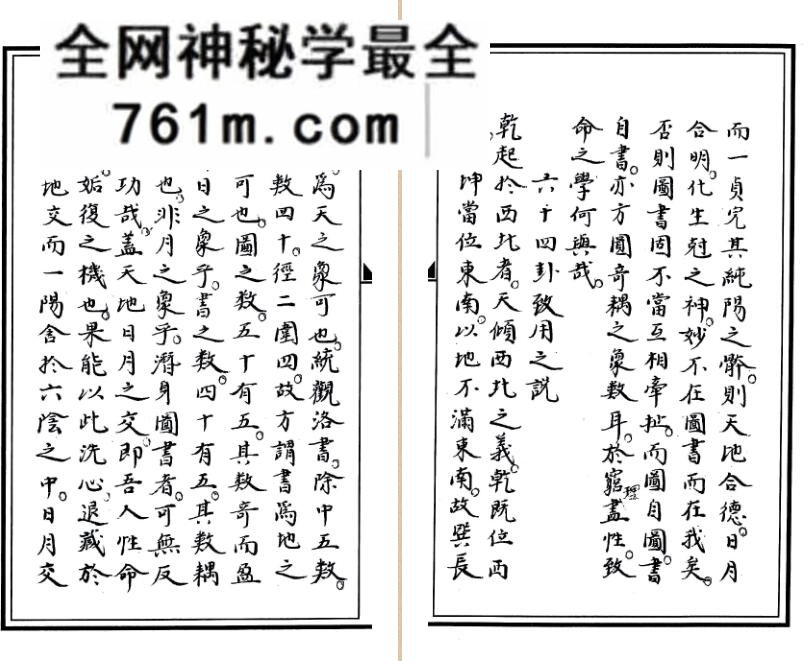 全网神秘学最全
761m.com
爲天之象可也。統觀洛書。除中五数。
数四十。徑二圍四。故方謂書爲地之
可也。圖之数。五十有五。其数奇而盈
日之象乎。書之数四十有五。其数耦
也。非月之象乎。潛身圖書者。可無反
功哉。蓋天地日月之交。即吾人性命
姤復之機也。果能以此洗心。退藏於
地交而一陽含於六陰之中。日月交
而一貞完其純陽之體。則天地合德。日月
合明。化生尅之神妙。不在圖書而在我矣。
否則圖書固不當互相牽扯。而圖自圖。書
自書。亦方圓奇耦之象数耳。於窮理盡性致
命之學何與哉。
六十四卦致用之説
乾起於西北者。天傾西北之義。乾既位西
坤當位東南。以地不滿東南。故巽長